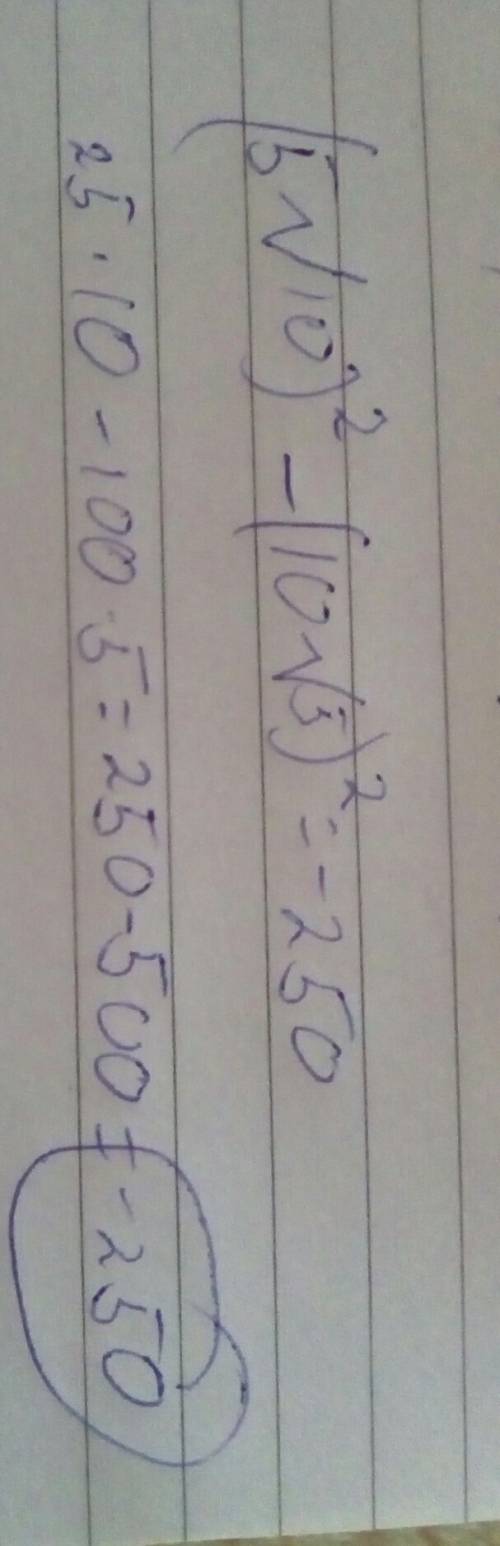 (5√10)² - (10√5)² = -250
25·10 - 100·5 = 250 - 500 = -250